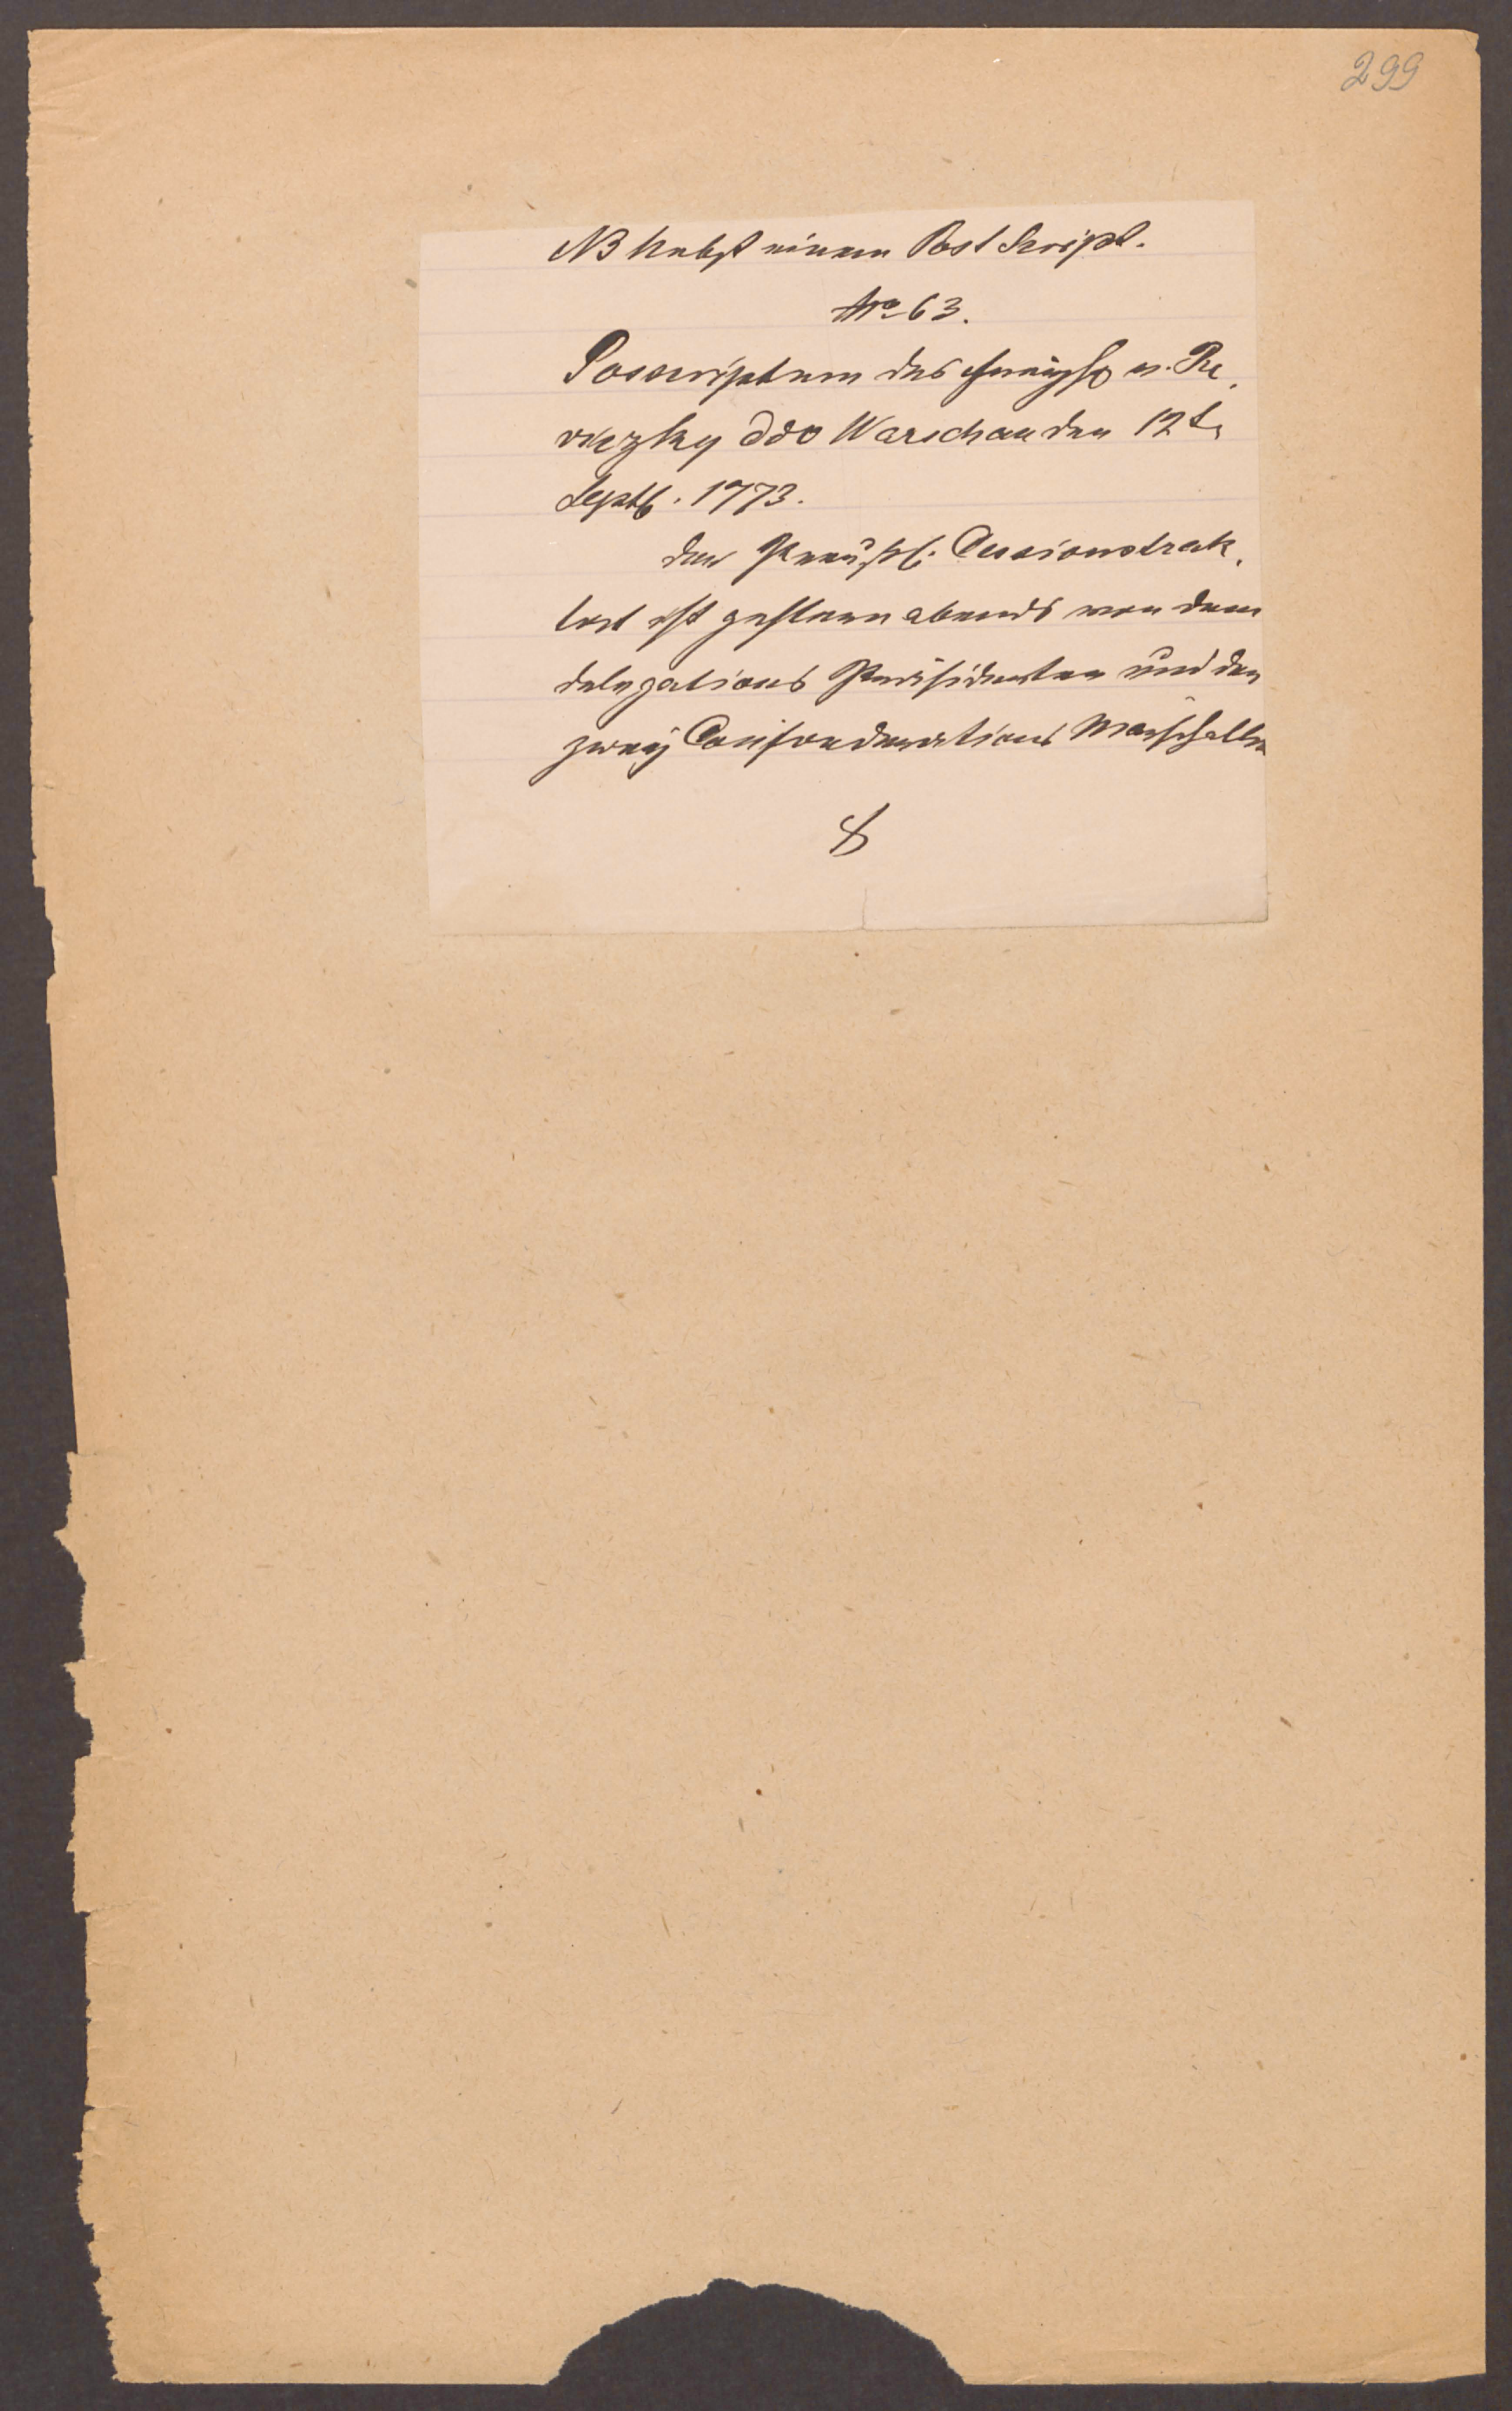 299
NB Nebst einem Post Script.
No 63.
Posscriptum des v. Re,
vitzky ddo Warschau den 12t.
Septb. 1773.
der Preußl. Cessionstrak,
tat ist gestern abends von dem
delegations Präsidenten und den
zweÿ Confoederations Marschallen